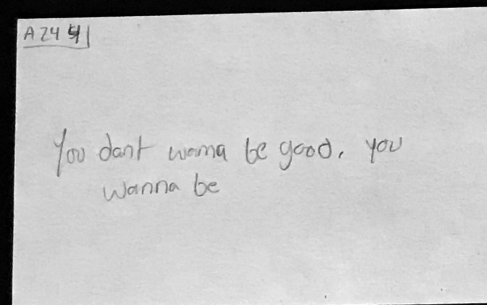 A24 51
You dont wanna be good, you
wanna be